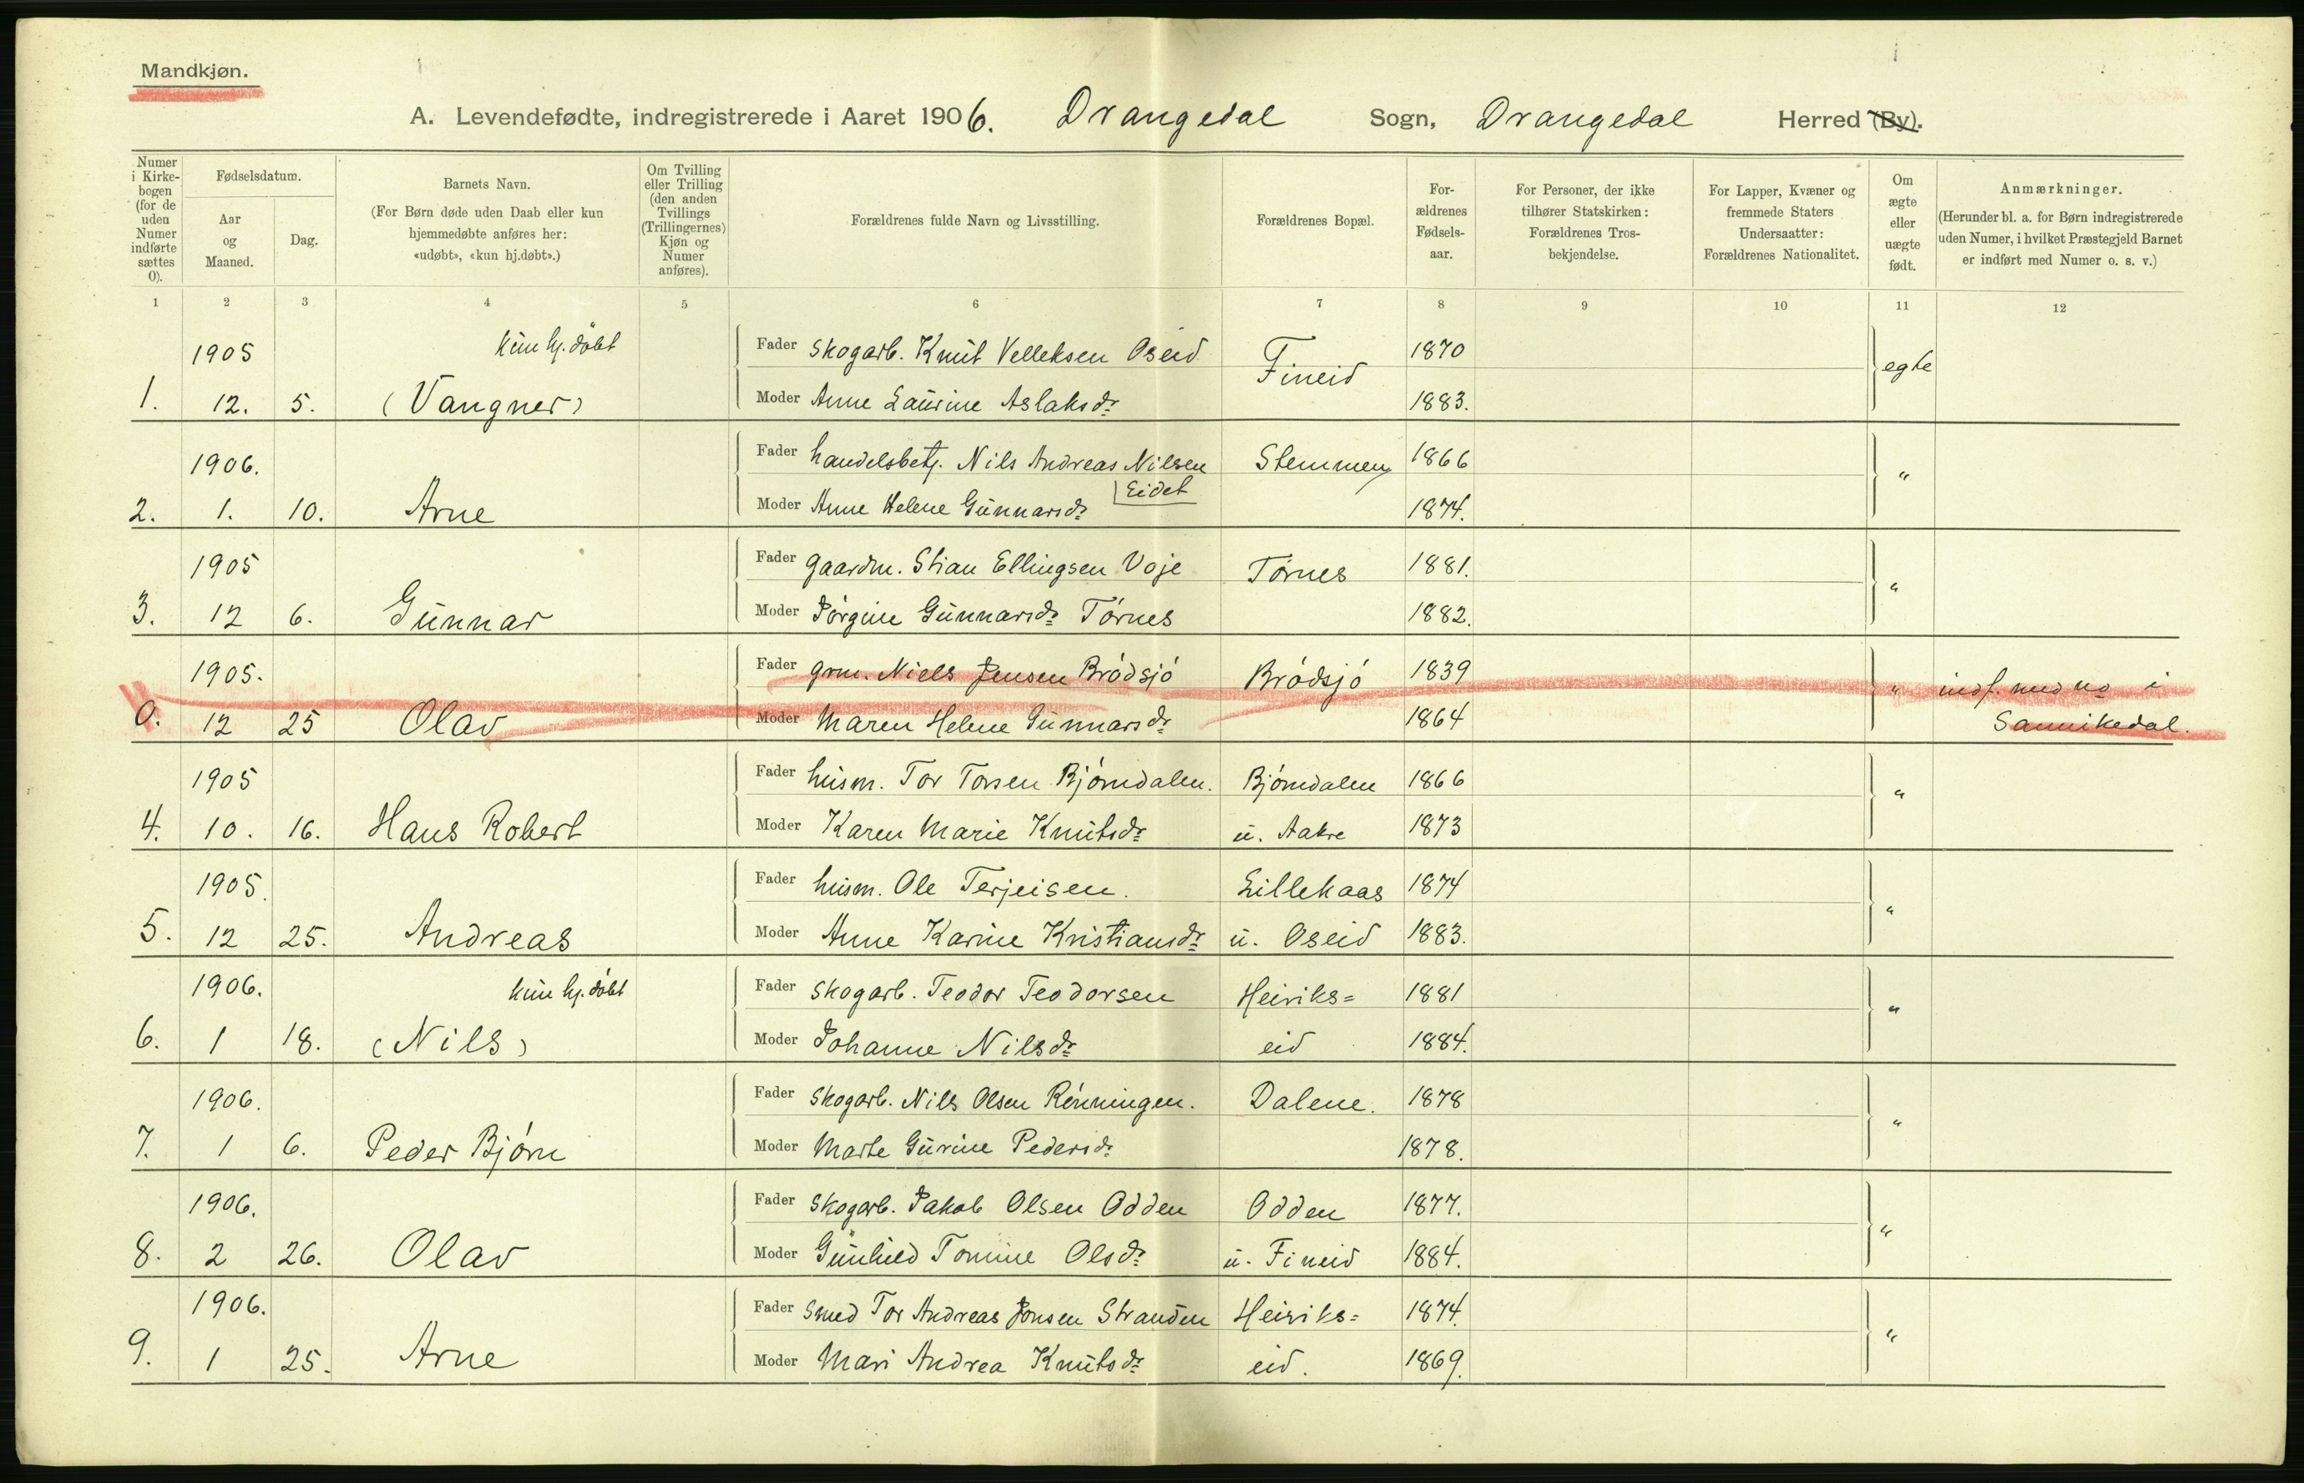 Mandkjøn.
A. Levendefødte, indregistrerede i Aaret 1906. Drangedal Sogn, Drangedal Herred (By).
Numer i Kirkebogen (for de uden Numer indførte sættes 0).
Fødselsdatum.
Aar og Maaned.
Dag.
Barnets Navn.
(For Børn døde uden Daab eller kun hjemmedøbte anføres her: «udøbt», «kun hj.døbt».)
Om Tvilling eller Trilling (den anden Tvillings (Trillingernes) Kjøn og Numer anføres).
Forældrenes fulde Navn og Livsstilling.
Forældrenes Bopæl.
For-ældrenes Fødsels-aar.
For Personer, der ikke tilhører Statskirken: Forældrenes Tros-bekjendelse.
For Lapper, Kvæner og fremmede Staters Undersaatter: Forældrenes Nationalitet.
Om ægte eller uægte født.
Anmærkninger.
(Herunder bl. a. for Børn indregistrerede uden Numer, i hvilket Præstegjeld Barnet er indført med Numer o. s. v.)
1 2 3 4 5 6 7 8 9 10 11 12
1905 kun hj. døbt Fader Skogarb. Knut Velleksen Oseid Fineid 1870 egte
1. 12. 5. (Vangner) Moder Anne Laurine Aslaksdr 1883.
1906. Fader handelsbetj. Nils Andreas Nilsen Stemmen 1866 "
Eidet
2. 1. 10. Arne Moder Anne Helene Gunnarsdr 1874.
1905 Fader gaardm. Stian Ellingsen Voje Tørnes 1881. "
3. 12 6. Gunnar Moder Jørgine Gunnarsdr Tørnes 1882.
1905. Fader grm. Niels Jensen Brødsjø Brødsjø 1839 " indf. med no i
0. 12 25 Olav Moder Maren Helene Gunnarsdr 1864 Sannikedal.
1905 Fader husm. Tor Torsen Bjørndalen. Bjørndalen 1866 "
4. 10. 16. Hans Robert Moder Karen Marie Knutsdr u. Aakre 1873
1905. Fader husm. Ole Terjeisen. Lillekaas 1874 "
5. 12 25. Andreas Moder Anne Karine Kristiansdr u. Oseid 1883.
1906. kun hj. døbt Fader Skogarb. Teodor Teodorsen Heiriks= 1881 "
6. 1 18. (Nils) Moder Johanne Nilsdr eid 1884.
1906. Fader Skogarb. Nils Olsen Rønningen. Dalene. 1878 "
7. 1 6. Peder Bjørn Moder Marte Gurine Pedersdr 1878.
1906. Fader Skogarb. Jakob Olsen Odden Odden 1877. "
8. 2 26. Olav Moder Gunhild Tomine Olsdr u. Fineid 1884.
1906. Fader Smed Tor Andreas Jonsen Stranden Heiriks= 1874. "
9. 1 25. Arne Moder Mari Andrea Knutsdr eid. 1869.